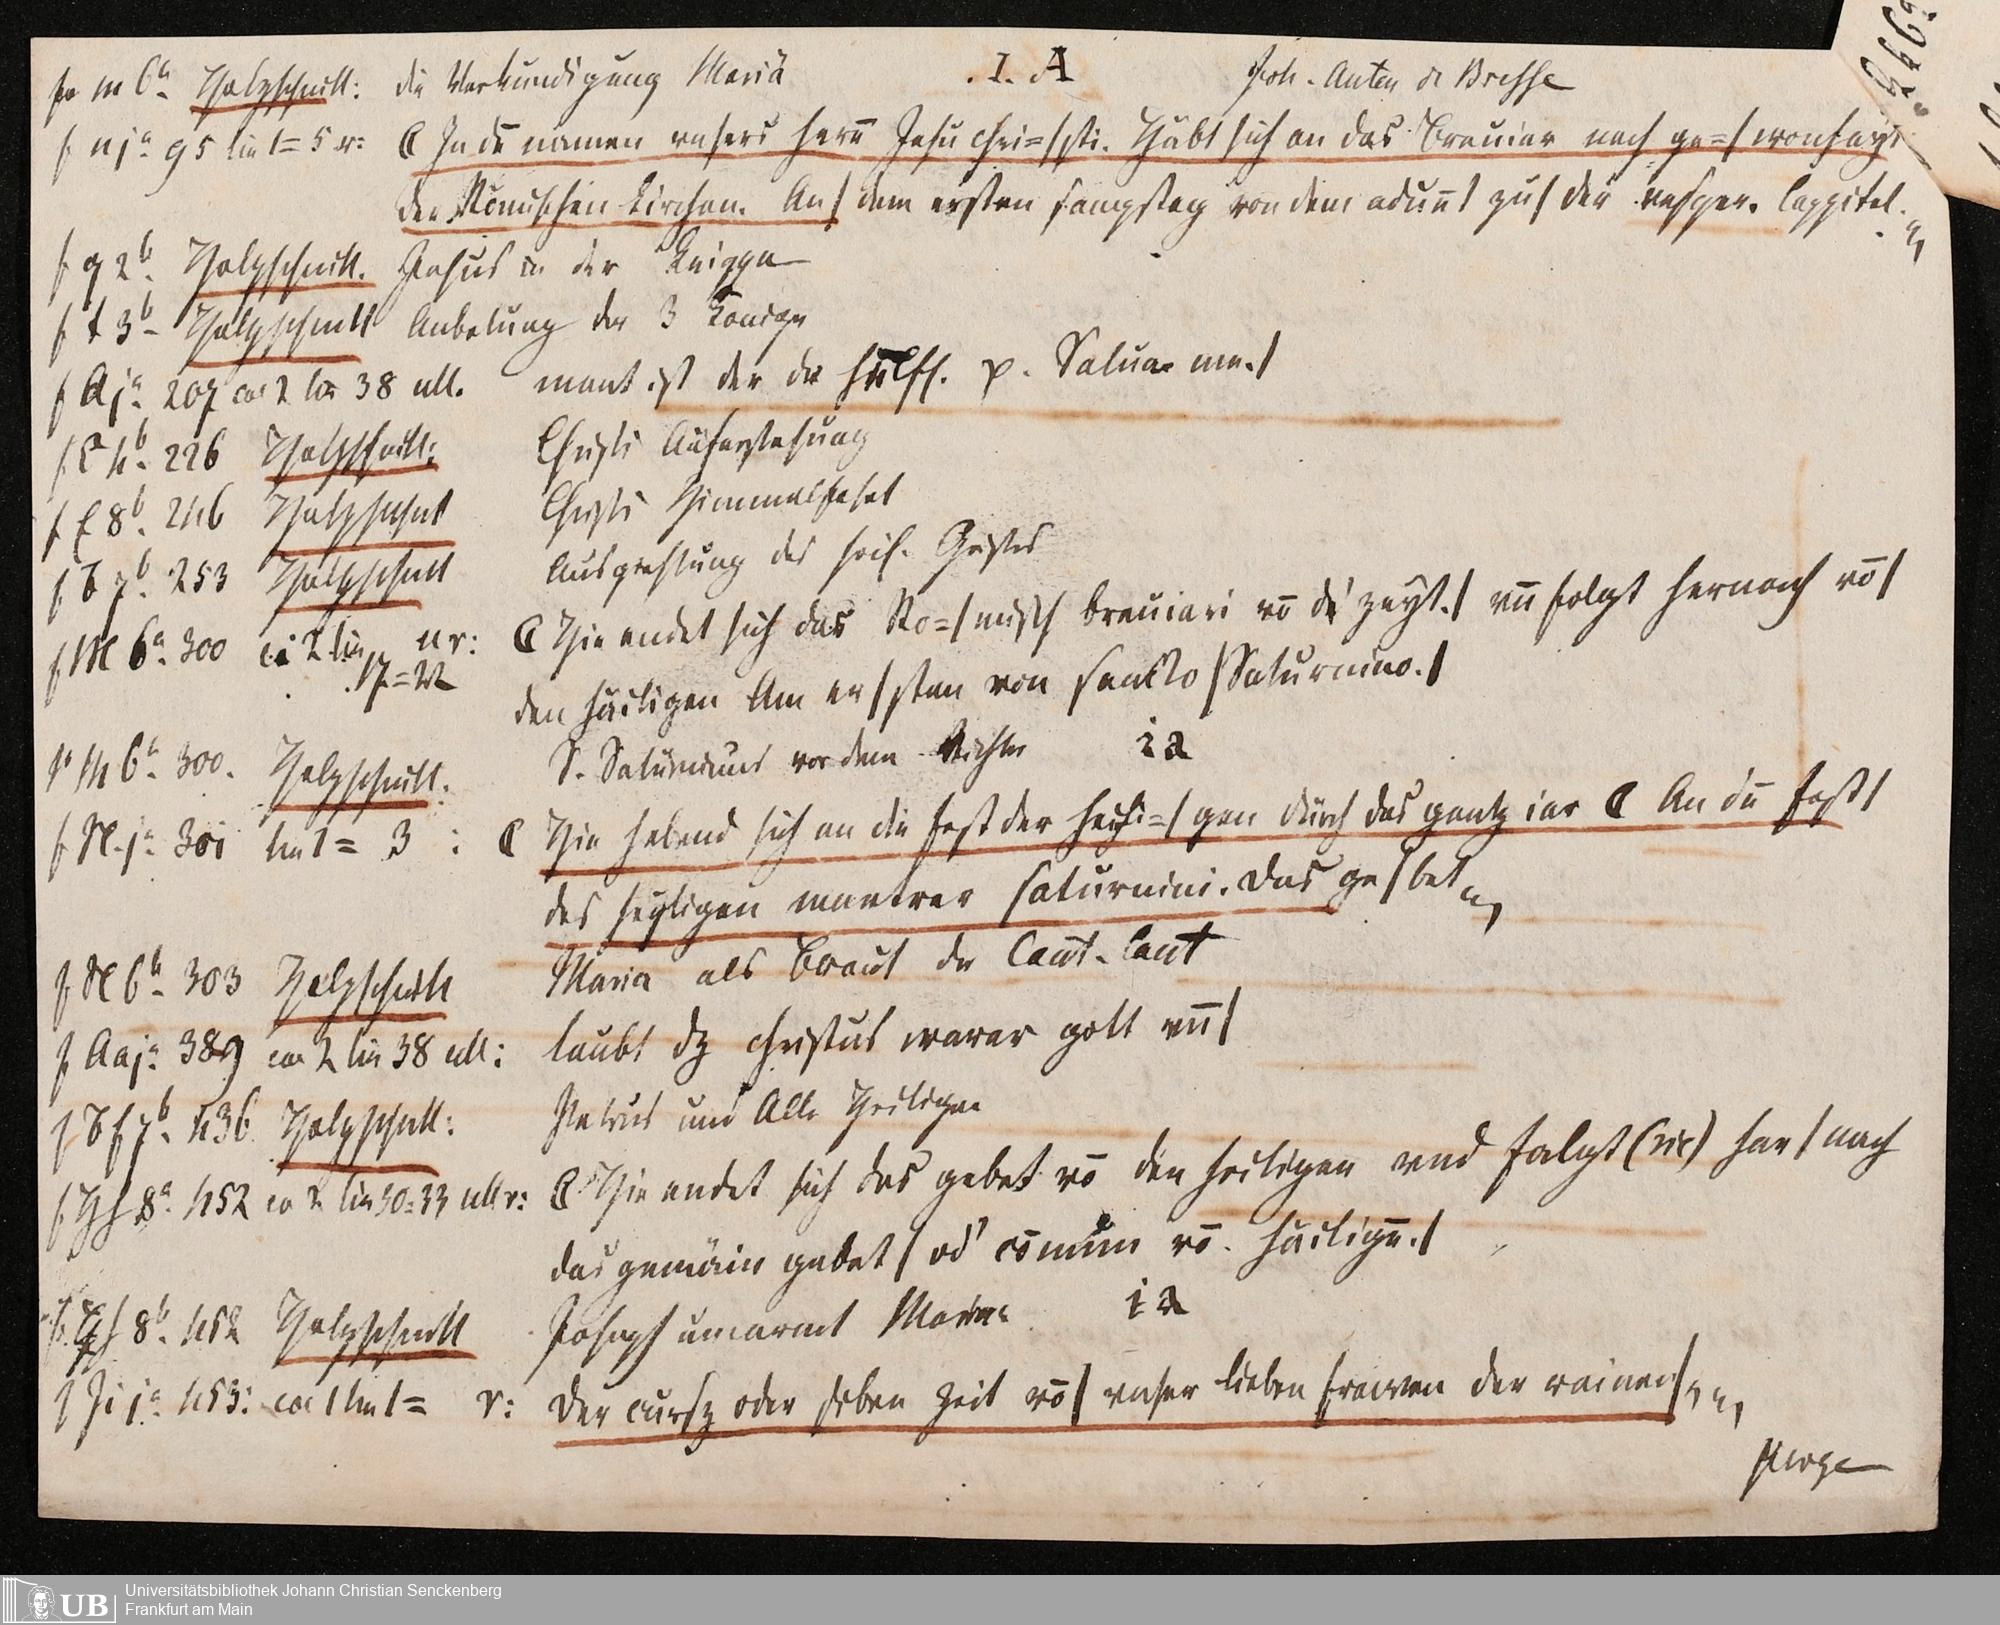 f m 6a. Holzschnitt: die Verkundigung Mariä .I. A Joh. Anton de Bresse
f n ja. 95 lin 1=5 r: ℂ In dē namen vnsers herñ Jesu chri=/sti. Häbt sich an das breuiar nach ge=/wonhayt
der Römischen kirchen. An/ dem ersten sampstag von dem aduēt/ zu/ der vesper. Cappitel.
f q 2b. Holzschnitt. Jesus in der Krippe
f t 3b Holzschnitt Anbetung der 3 Könige
f A ja. 207 col 2 lin 38 ult. ment ist der dir hulff. p. Salua me./
f C 4b. 226 Holzschnitt: Christi Auferstehung
f E 8b. 246 Holzschnit Christi Himmelfahrt
f F 7b. 253 Holzschnitt Ausgiessung des heil. Geistes
f M 6a. 300 col 2 lin ur: ℂ Hie endet sich das Ro=/misch breuiari vō d' zeyt./ vn̄ folgt hernach vō/
17=22 den häiligen Am er/sten von sancto/Saturnino./
f M 6b. 300. Holzschnitt. S. Saturninus vor dem Richter i a
f N ja. 30i lin 1= 3 : ℂ Hie hebend sich an die fest der heyli=/gen durch das gantz iar ℂ An dē fest/
des heyligen martrer saturnini. Das ge/bet
f N 6b. 303 Holzschnitt Maria als Braut der Cant. Cant
f Aa ja. 389 col 2 lin 38 ult: laubt dz christus warer gott vn̄/
f Ff 7b. 436 Holzschnitt: Petrus und Alle Heiligen
f Hh 8a. 452 col 2 lin 30=33 ult r: ℂ Hie endet sich das gebet vō den heiligen vnd falgt (sic) har/nach
das gemäin gebet/ od' cōmun vō. häiligē./
f. Hh 8b. 452 Holzschnitt Joseph umarmt Maria i a
f Ji ja. 453: col 1 lin 1= r: Der cursz oder siben zeit vō/ vnser lieben frawen der rainen/